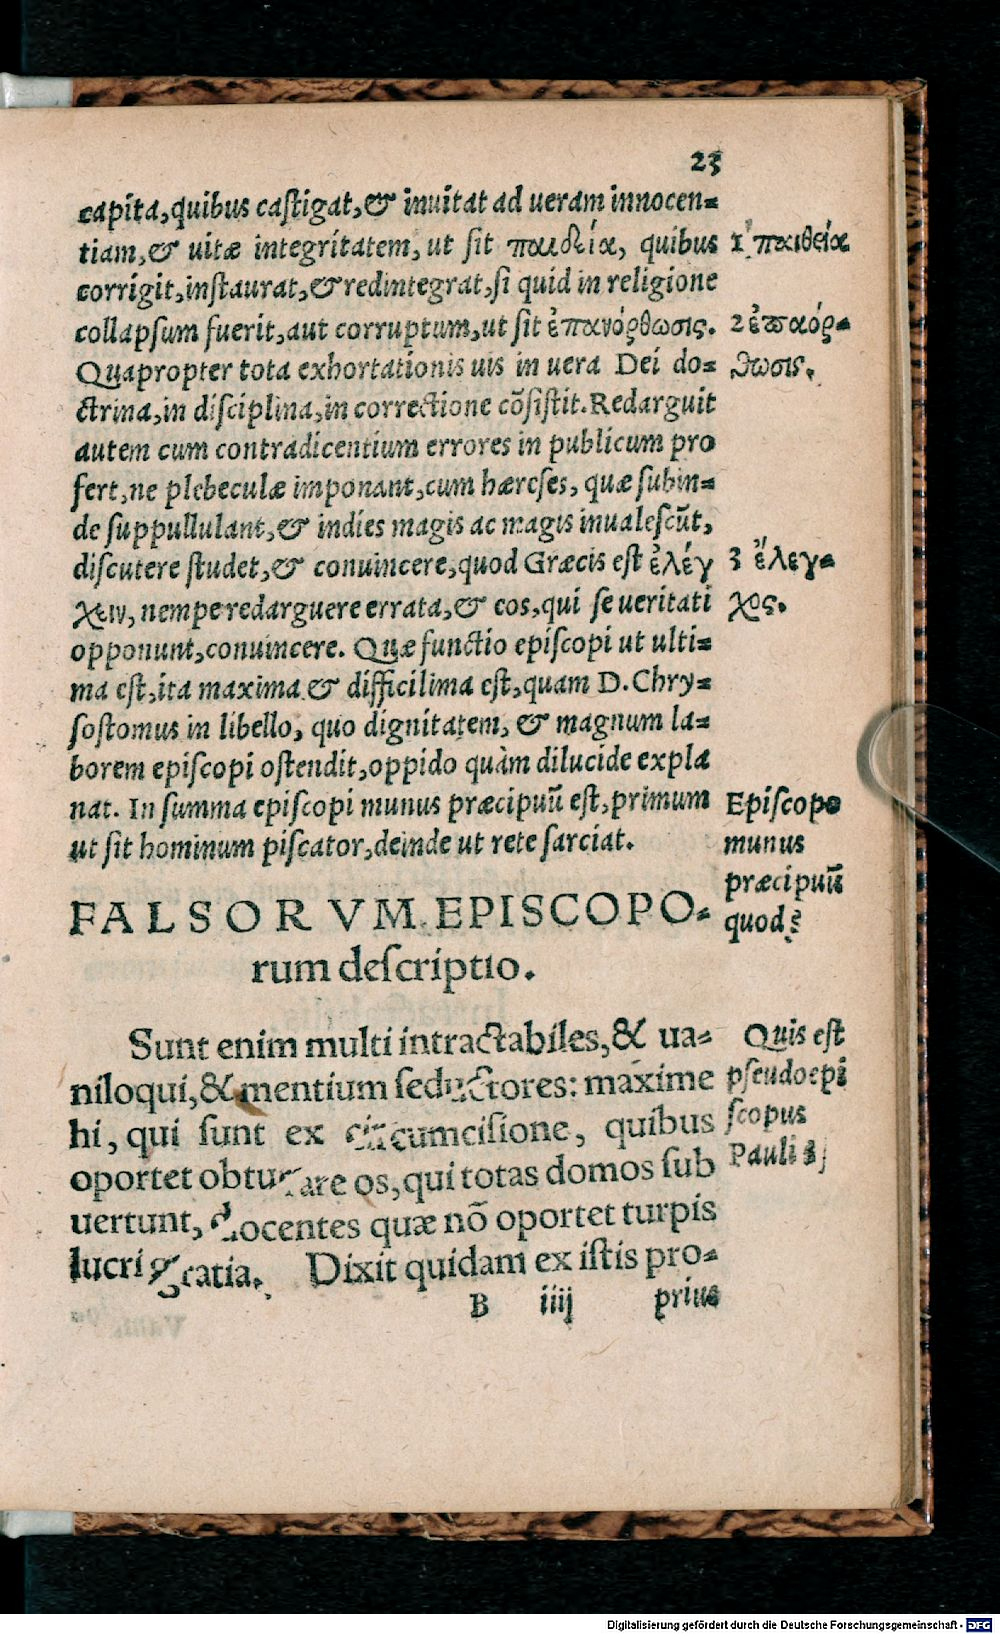 23
capita,quibus castigat,& inuitat ad ueram innocen=
tiam,& uitæ integritatem, ut sit παιδεία, quibus
corrigit,instaurat,& redintegrat,si quid in religione
collapsum fuerit,aut corruptum,ut sit ἐπανόρθωσις.
Quapropter tota exhortationis uis in uera Dei do=
ctrina,in disciplina,in correctione cõsistit. Redarguit
autem cum contradicentium errores in publicum pro
fert,ne plebeculæ imponant,cum hæreses, quæ subin=
de suppullulant,& indies magis ac magis inualescũt,
discutere studet,& conuincere,quod Græcis est ἐλέγ
χειν, nempe redarguere errata,& eos,qui se ueritati
opponunt,conuincere. Quæ functio episcopi ut ulti=
ma est,ita maxima & difficilima est,quam D. Chry=
sostomus in libello, quo dignitatem, & magnum la=
borem episcopi ostendit,oppido quàm dilucide expla
nat. In summa episcopi munus præcipuũ est,primum
ut sit hominum piscator,deinde ut rete sarciat.
1 παιδεία
2 ἐπαόρ=
θωσις.
3 ἔλεγ=
χος.
Episcopo
munus
præcipuũ
quod?
FALSORVM EPISCOPO=
rum descriptio.
Sunt enim multi intractabiles,& ua=
niloqui,& mentium seductores: maxime
hi, qui sunt ex circumcisione, quibus
oportet obturare os,qui totas domos sub
uertunt, docentes quæ nõ oportet turpis
lucri gratia. Dixit quidam ex istis pro=
Quis est
pseudoepi
scopus
Pauli
B iiij prius
Digitalisierung gefördert durch die Deutsche Forschungsgemeinschaft - DFG